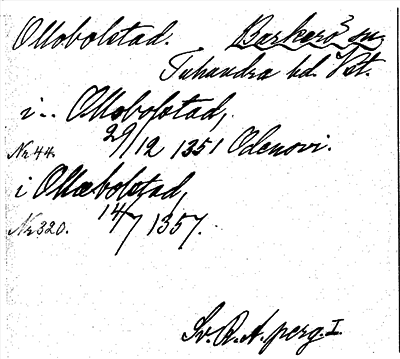 Ollobolstad. Barkarö sn,
Tuhundra hd. Vst.
i .. Ollobolstad,
29/12 1351 Odenvi.
Nr 44.
i Ollæbolstad,
14/7 1357.
Nr 320.
Sv. R. A. perg. I.